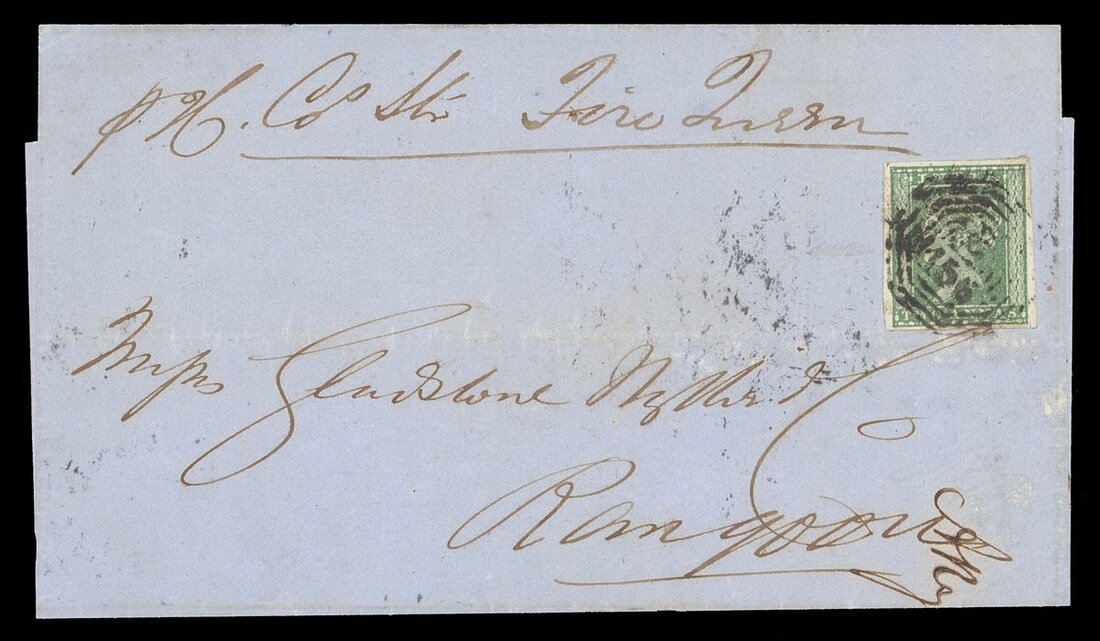 p H. Co's Str Fire Queen
Messrs Gladstone Wyllie & Co
Rangoon